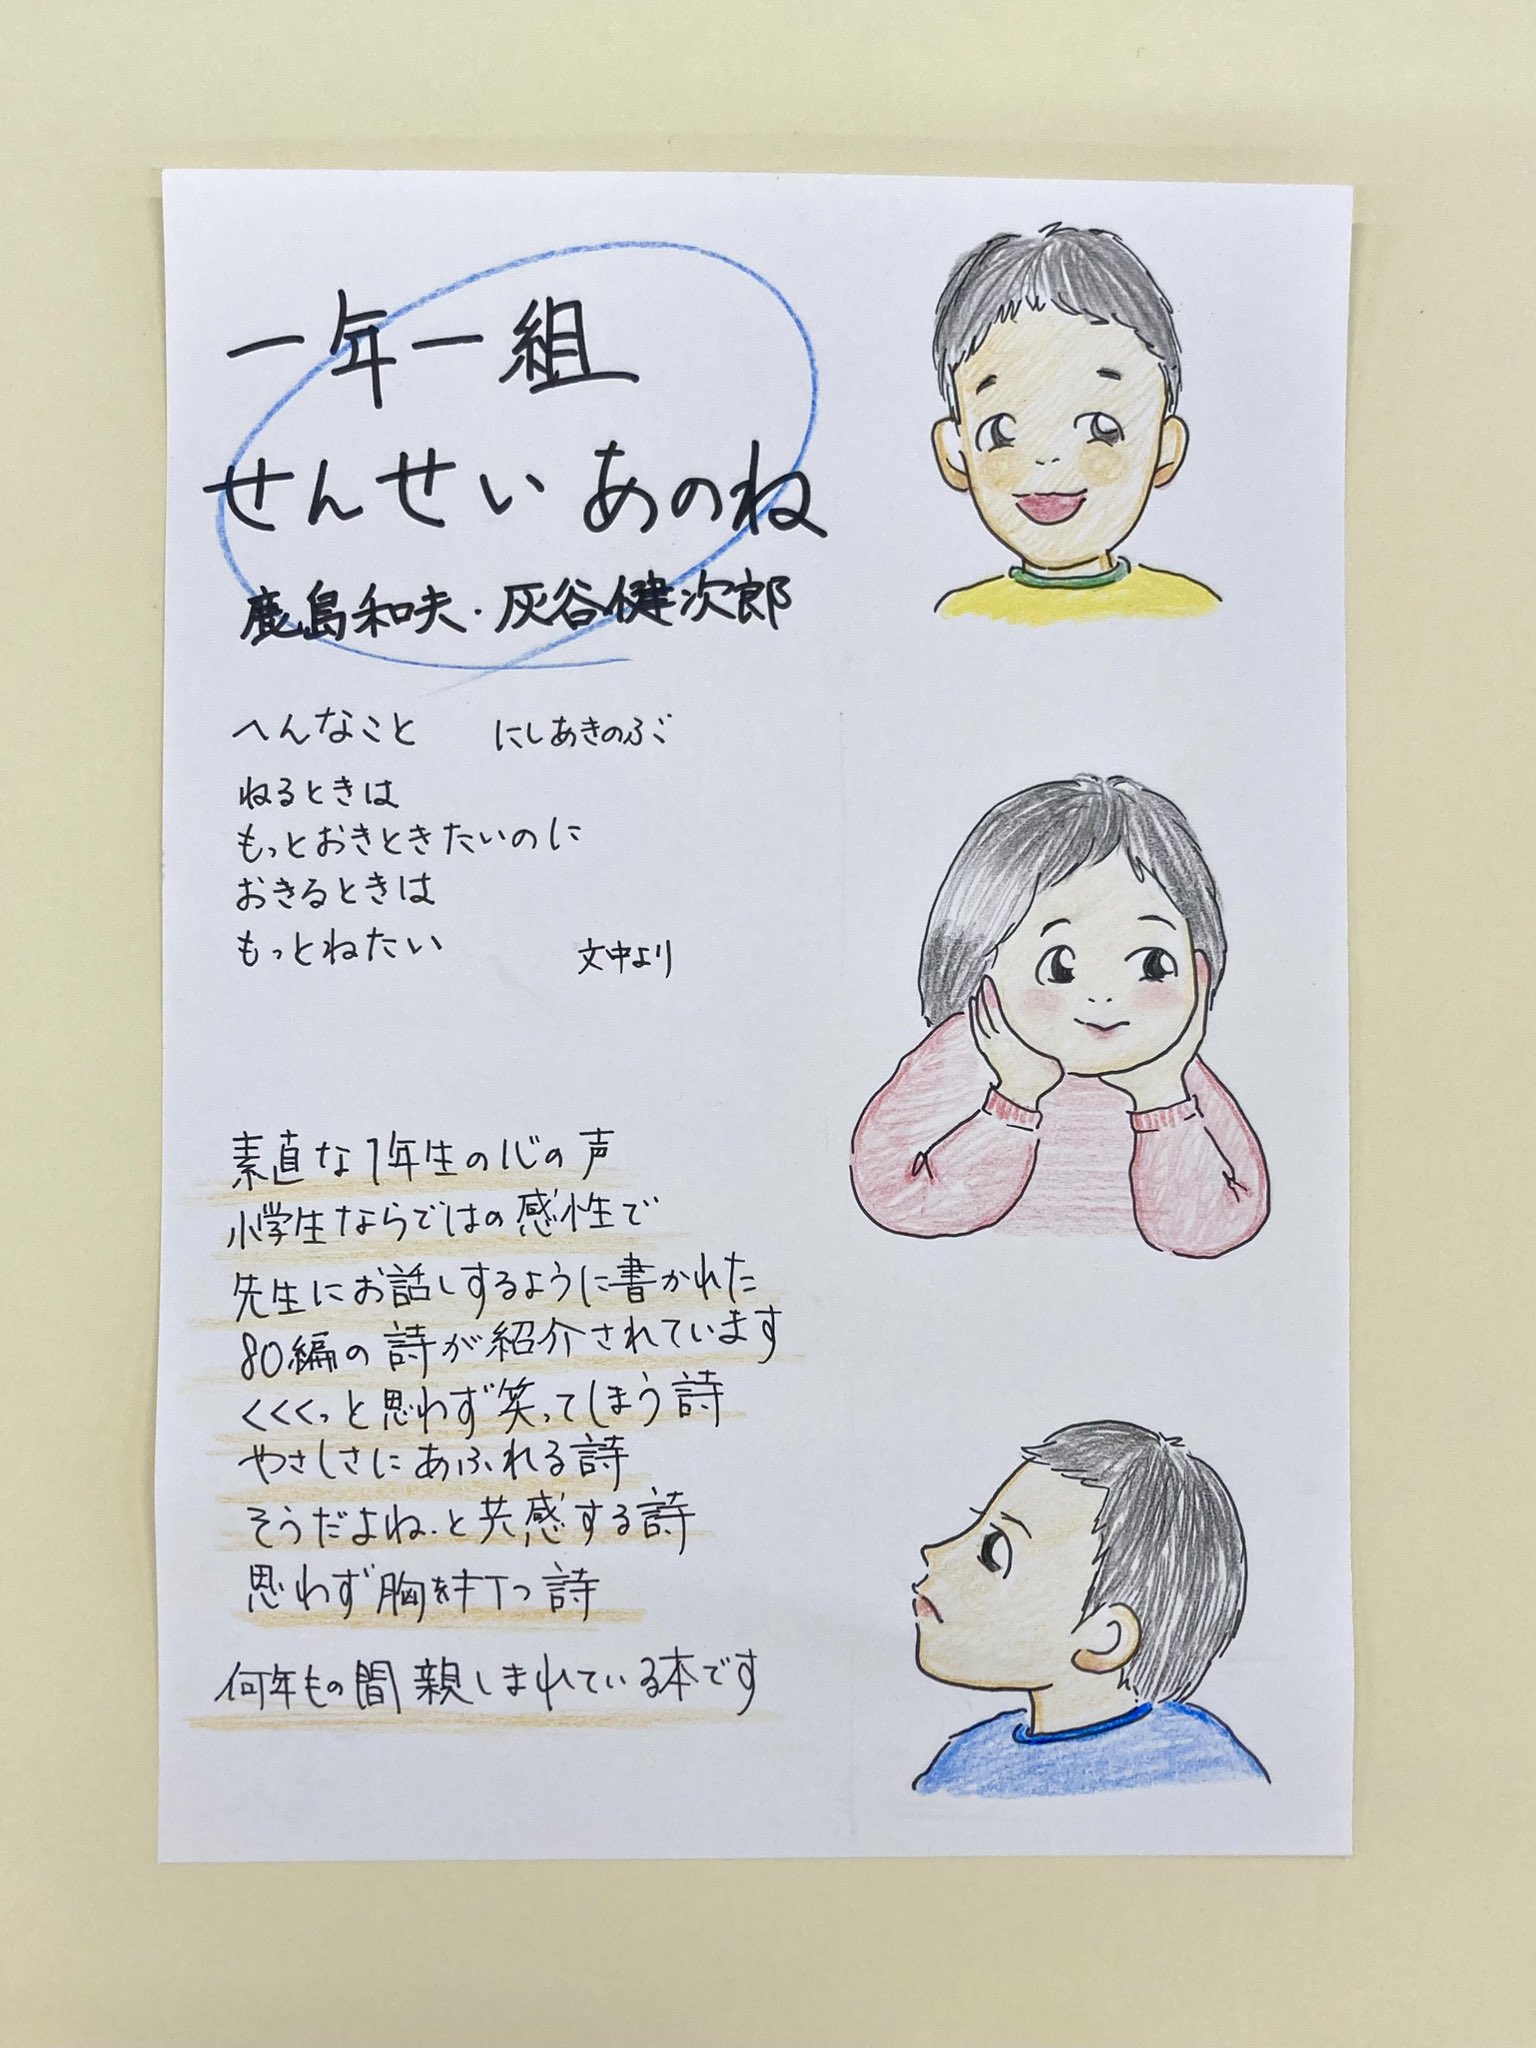 一年一組
せんせいあのね
鹿島和夫・灰谷健次郎
へんなこと　にしあきのぶ
ねるときは
もっとおきときたいのに
おきるときは
もっとねたい
文中より
素直な1年生の心の声
小学生ならではの感性で
先生にお話しするように書かれた
80編の詩が紹介されています
くくくっと思わず笑ってしまう詩
やさしさにあふれる詩
そうだよね.と共感する詩
思わず胸を打つ詩
何年もの間親しまれている本です